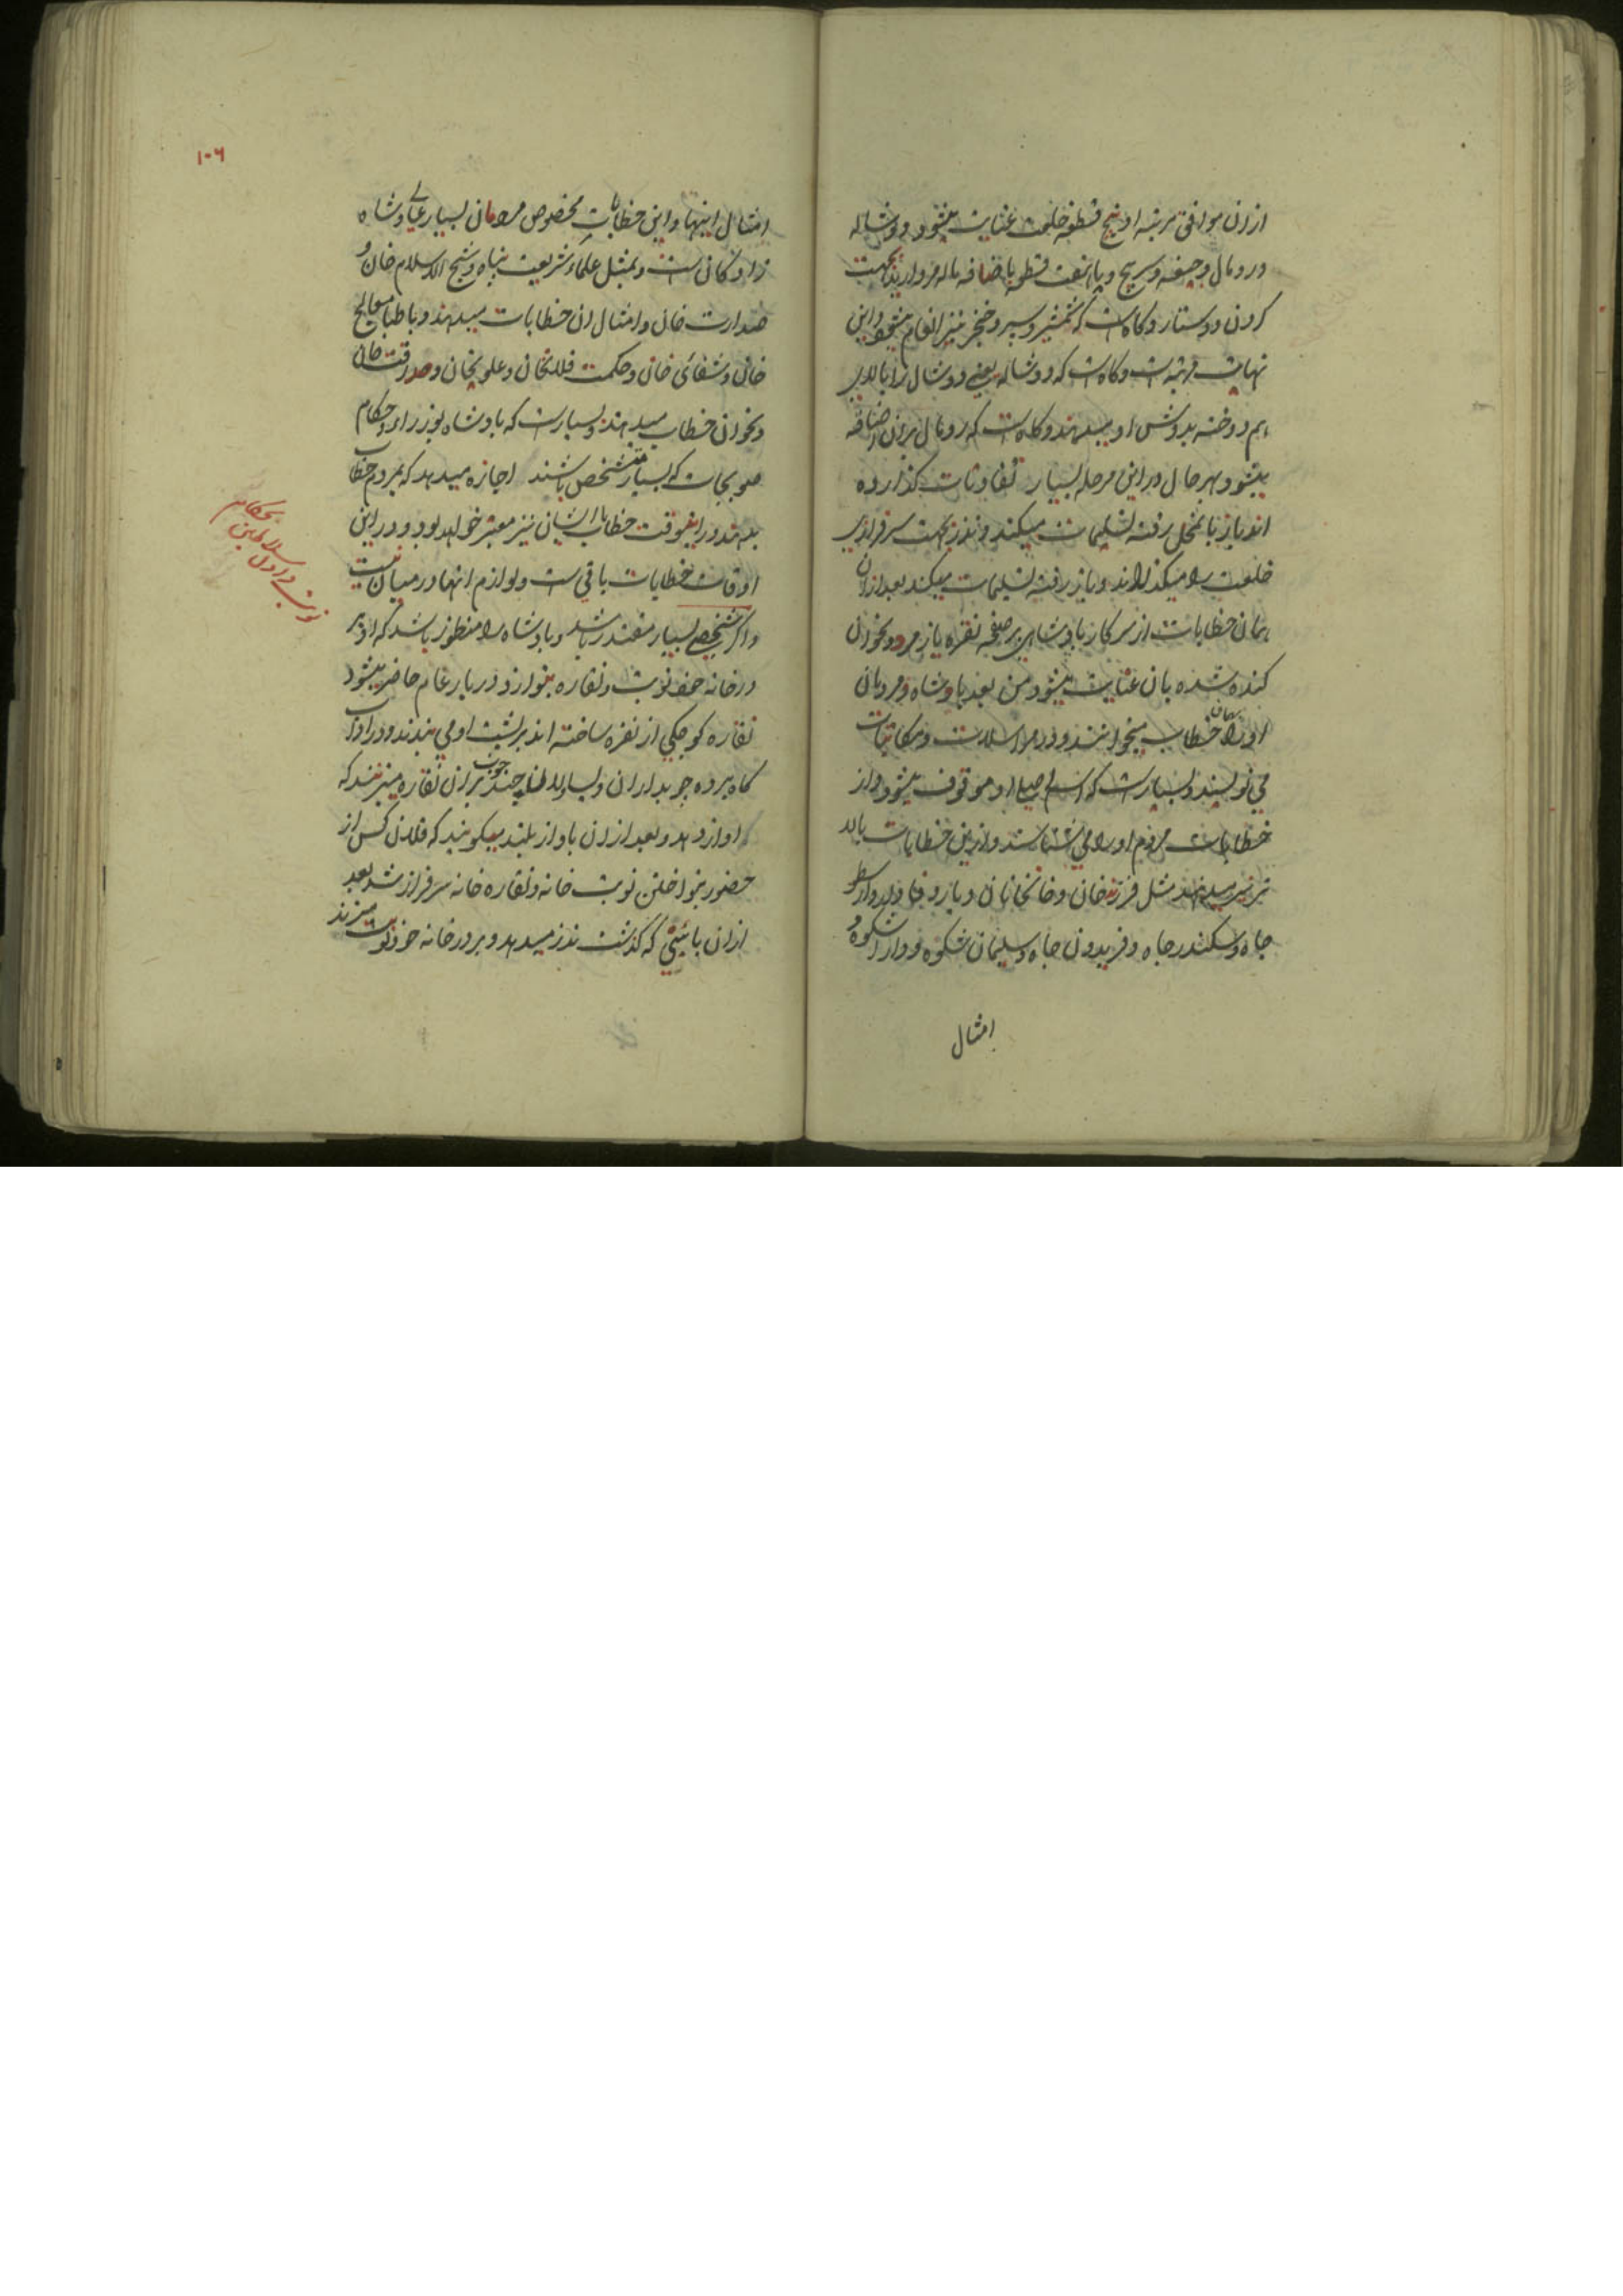 ازان موافق مرتبه او پنج قطعه خلعت عنایت میشود دوشاله
و رومال و جیغه و سرپیچ و یا هفت قطعه باضافه ماله مروارید بجهت
کردن و دستار و کاه است که شمشیر و سپر و خنجر نیز انعام میشود و این
نهایت مرتبه است و کاه است که دوشاله یعنی دو شال را بالای
هم دوخته بدوش او میدهند و کاه است که رومال بران اضافه
میشود بهر حال در این مرحله بسیار تفاوتات کذارده
اند باز بانمحل رفته تسلیمات میکند و نذر بجهت سرفرازی
خلعت را میکذراند و باز رفته تسلیمات میکند بعد ازان
همان خطابات از سرکار پادشاهی بر صفحه نقره یا زمرد و نحوان
کنده شده بان عنایت میشود من بعد پادشاه و مردمان
او را بهمان خطاب میخوانند و در مراسلات و مکاتبات
می نویسند و بسیار است که اسم اصلی او موقوف میشود و از
خطابات مردم او را می شناسند و ازین خطابات بالا
تر نیز میدهند مثل فرزند خان و خانخانان و یار وفادار و ارسطو
جاه و سکندر جاه و فریدون جاه و سلیمان شکوه و دارا شکوه و
امثال
۱۰۶
امثال اینها و این خطابات مخصوص مردمان بسیار عالی و شاه
زادکانی است و بمثل علماء شریعت پناه و شیخ الاسلام خان و
صدارت خان و امثال ان خطابات میدهند و باطبا معالج
خان و شفائی خان و حکمت فلانخان و علویخان و خان
و نحوان خطاب میدهند و بسیار است که پادشاه بوزراء و حکام
صوبجات که بسیار متشخص باشند اجازه میدهد که بمردم خطاب
بدهند در اینوقت خطاب ایشان نیز معتبر خواهد بود و در این
اوقات خطابات باقی است و لوازم انها در میان نیست
و اکر شخصی بسیار مقتدر باشد و پادشاه را منظور باشد که او بر
در خانه خود نوبت و نقاره بنوازد در بار عام حاضر میشود
نقاره کوچکی از نقره ساخته اند بر پشت او می بندند و در اداب
کاه برده چوبداران و یساولان چند چوب بران نقاره میزنند که
اواز دهد و بعد ازان باواز بلند میکویند که فلان کس از
حضور بنواختن نوبت خانه و نقاره خانه سرفراز شد بعد
ازان بائینی که کذشت نذر میدهد و بر در خانه خود نوبت میزند
نوبت دادن
سلاطین
بحکام